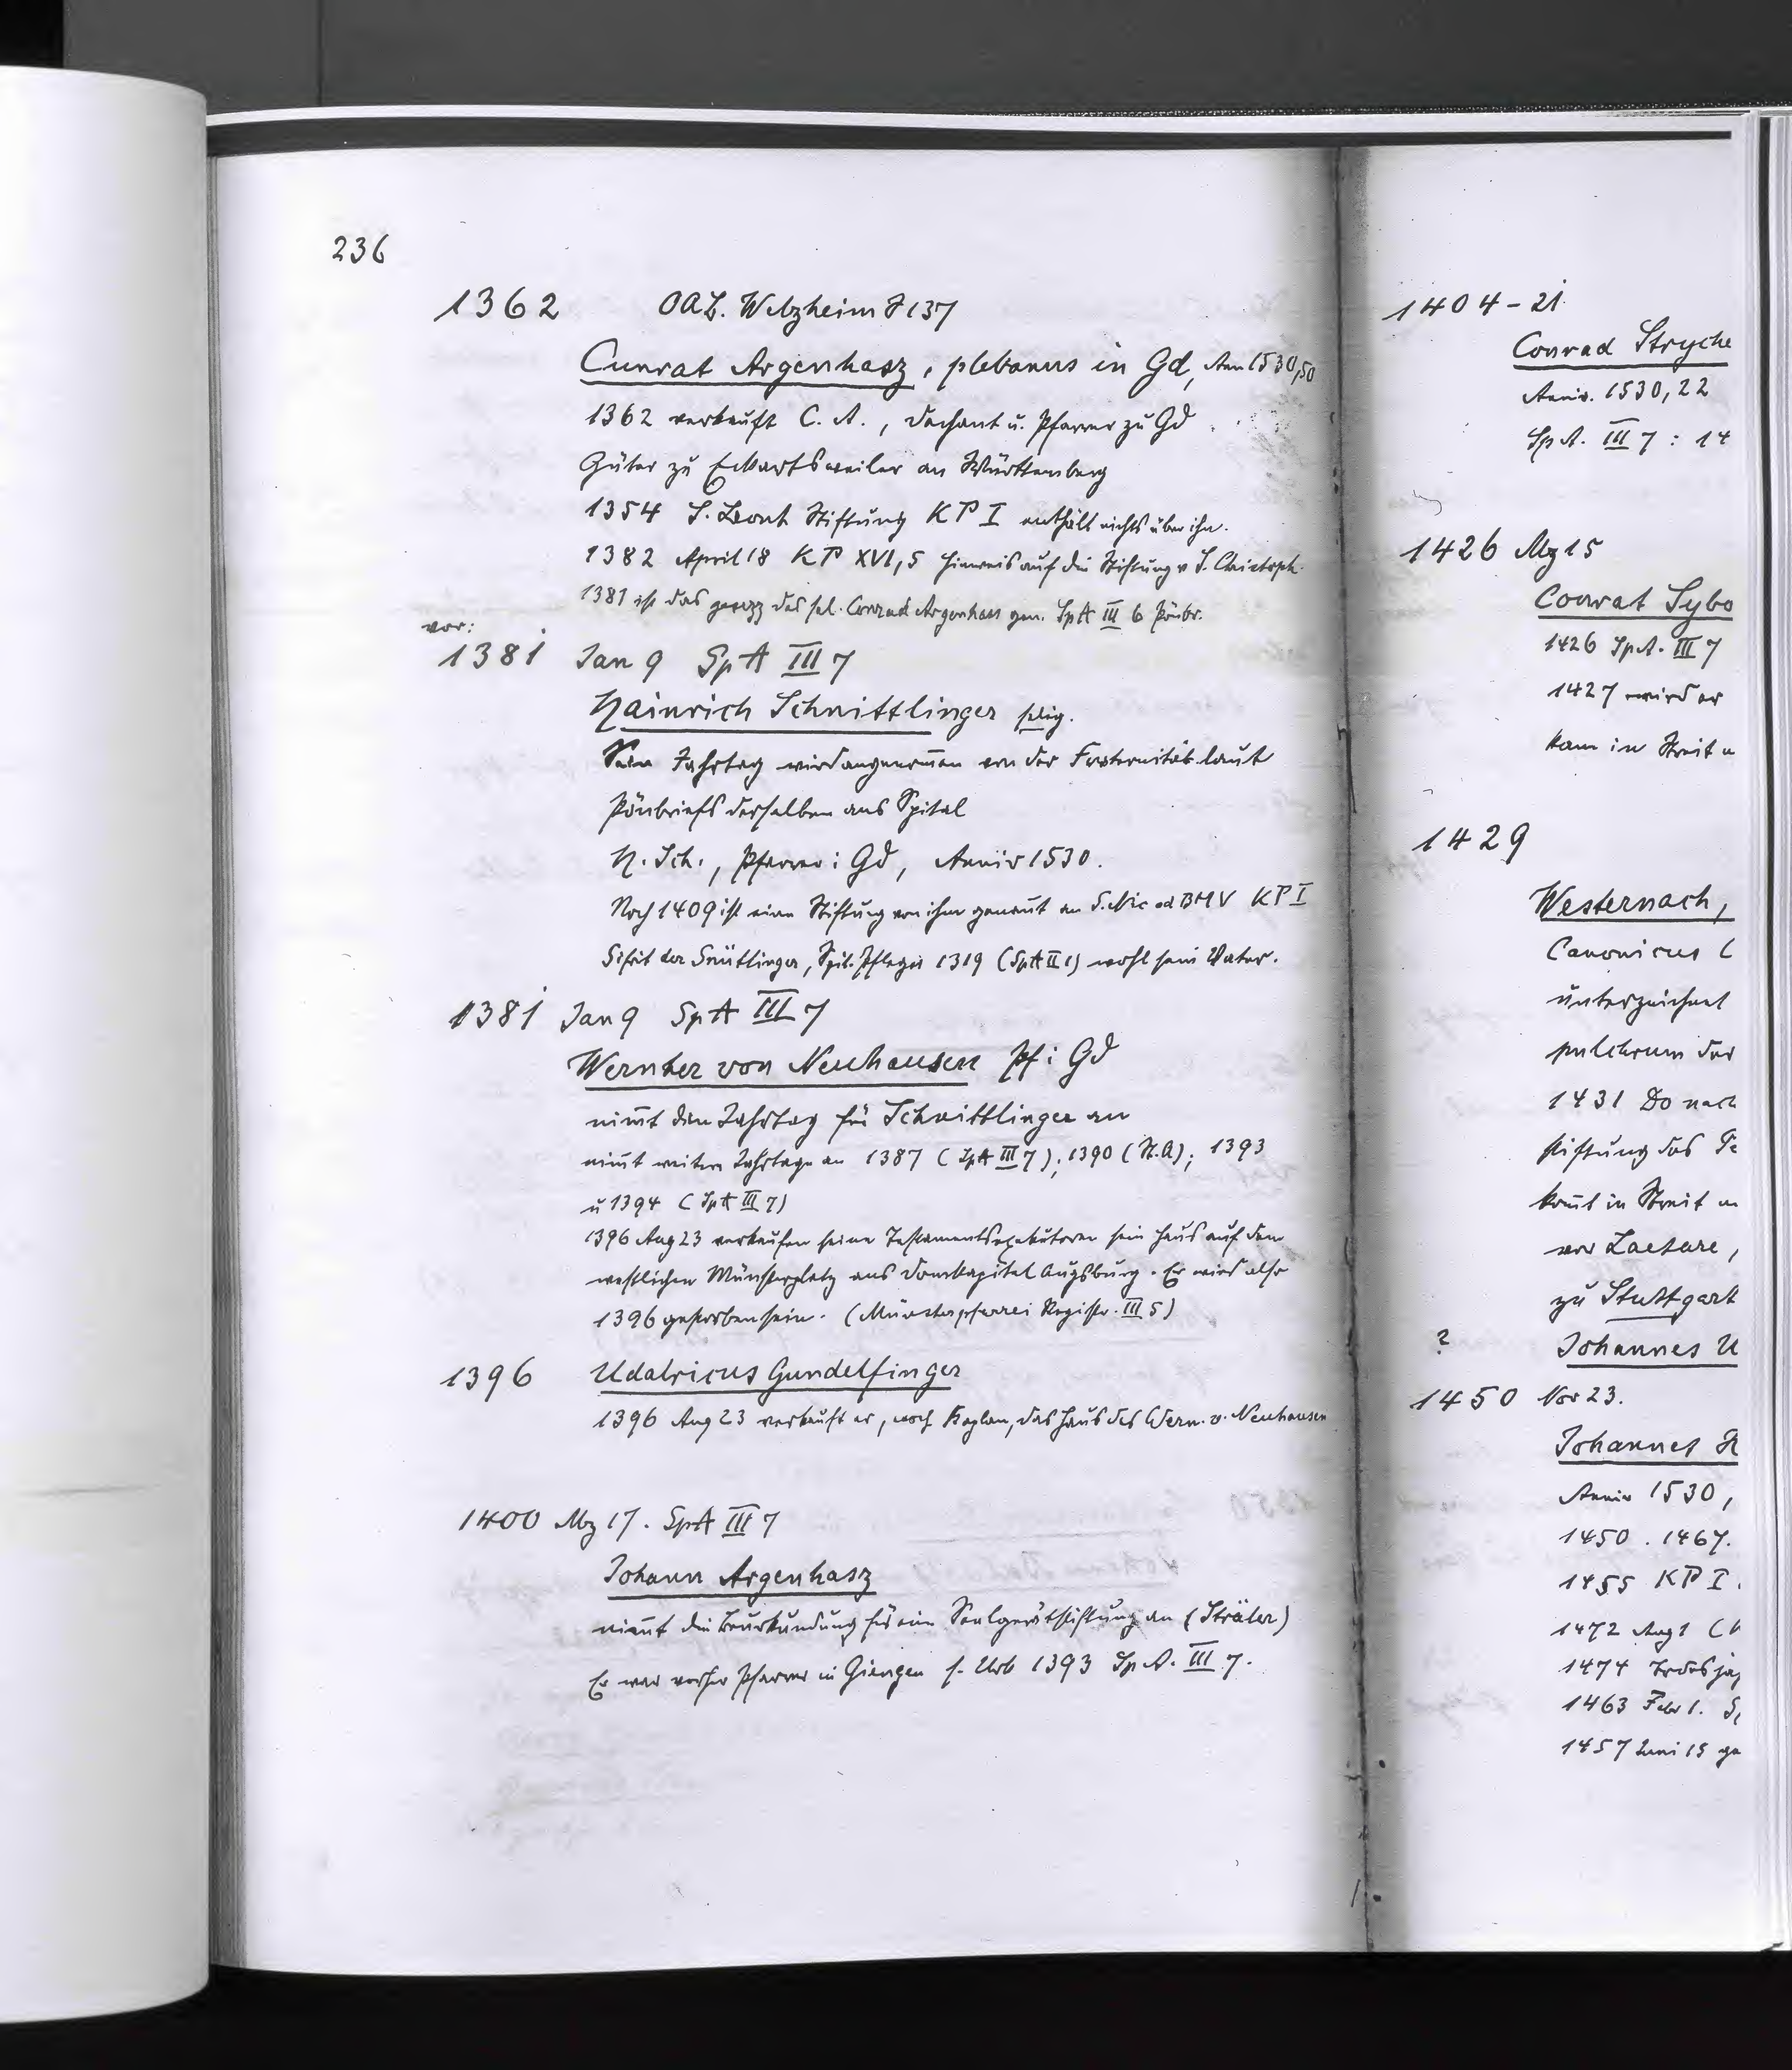 236
1362 OAB. Welzheim S 137
Cunrat Argenhasz, plebanus in Gd, Ann 1530,50
1362 verkauft C. A., Dechant u. Pfarrer zu Gd
Güter zu Eckartsweiler an Württemberg
1354 S. Leonh Stiftung KP I enthält nichts über ihn.
1382 April 18 KP XVI,5 Hinweis auf die Stiftung v S. Christoph
1381 ist das gesezz des sel. Conrad Argenhass gen. SpA III 6 Pönbr.
vor:
1381 Jan 9 SpA III 7
Hainrich Schnittlinger selig.
Sein Jahrtag wird angenom̅en von der Fraternität laut
Pönbriefs derselben ans Spital
H. Sch., Pfarrer i Gd, Anniv 1530.
Noch 1409 ist eine Stiftung von ihm genannt an S. Nic od BMV KP I
Sifrit der Snittlinger, Spit. Pfleger 1319 (SpA II 1) wohl sein Vater.
1381 Jan 9 SpA III 7
Wernher von Neuhausen Pf i Gd
nim̅t den Jahrtag für Schnittlinger an
nim̅t weitere Jahrtage an 1387 (SpA III 7); 1390 (St.A); 1393
u 1394 (SpA III 7)
1396 Aug 23 verkaufen seine Testamentsexekutoren sein Haus auf dem
westlichen Münsterplatz ans Domkapitel Augsburg. Er wird also
1396 gestorben sein. (Münsterpfarrei Registr. III 5)
1396 Udalricus Gundelfinger
1396 Aug 23 verkauft er, noch Kaplan, das Haus des Wern. v. Neuhausen
1400 Mz 17. SpA III 7
Johann Argenhasz
nim̅t die Beurkundung für eine Seelgerätstiftung an (Sträler)
Er war vorher Pfarrer in Giengen s. Urk 1393 Sp A. III 7.
1404-21
Conrad Stryche
Anniv. 1530, 22
Sp A. III 7: 14
1426 Mz 15
Conrat Sybo
1426 Sp A. III 7
1427 wird er
kam in Streit
1429
Westernach,
Canonicus
unterzeichnet
pulchrum der
1431 Do nach
stiftung des
kom̅t in Streit
vor Laetare,
zu Stuttgart
? Johannes
1450 Nov 23.
Johannes
Anniv 1530,
1450. 1467.
1455 KP I.
1472 Aug 1
1474
1463 Febr 1.
1457 Juni 15